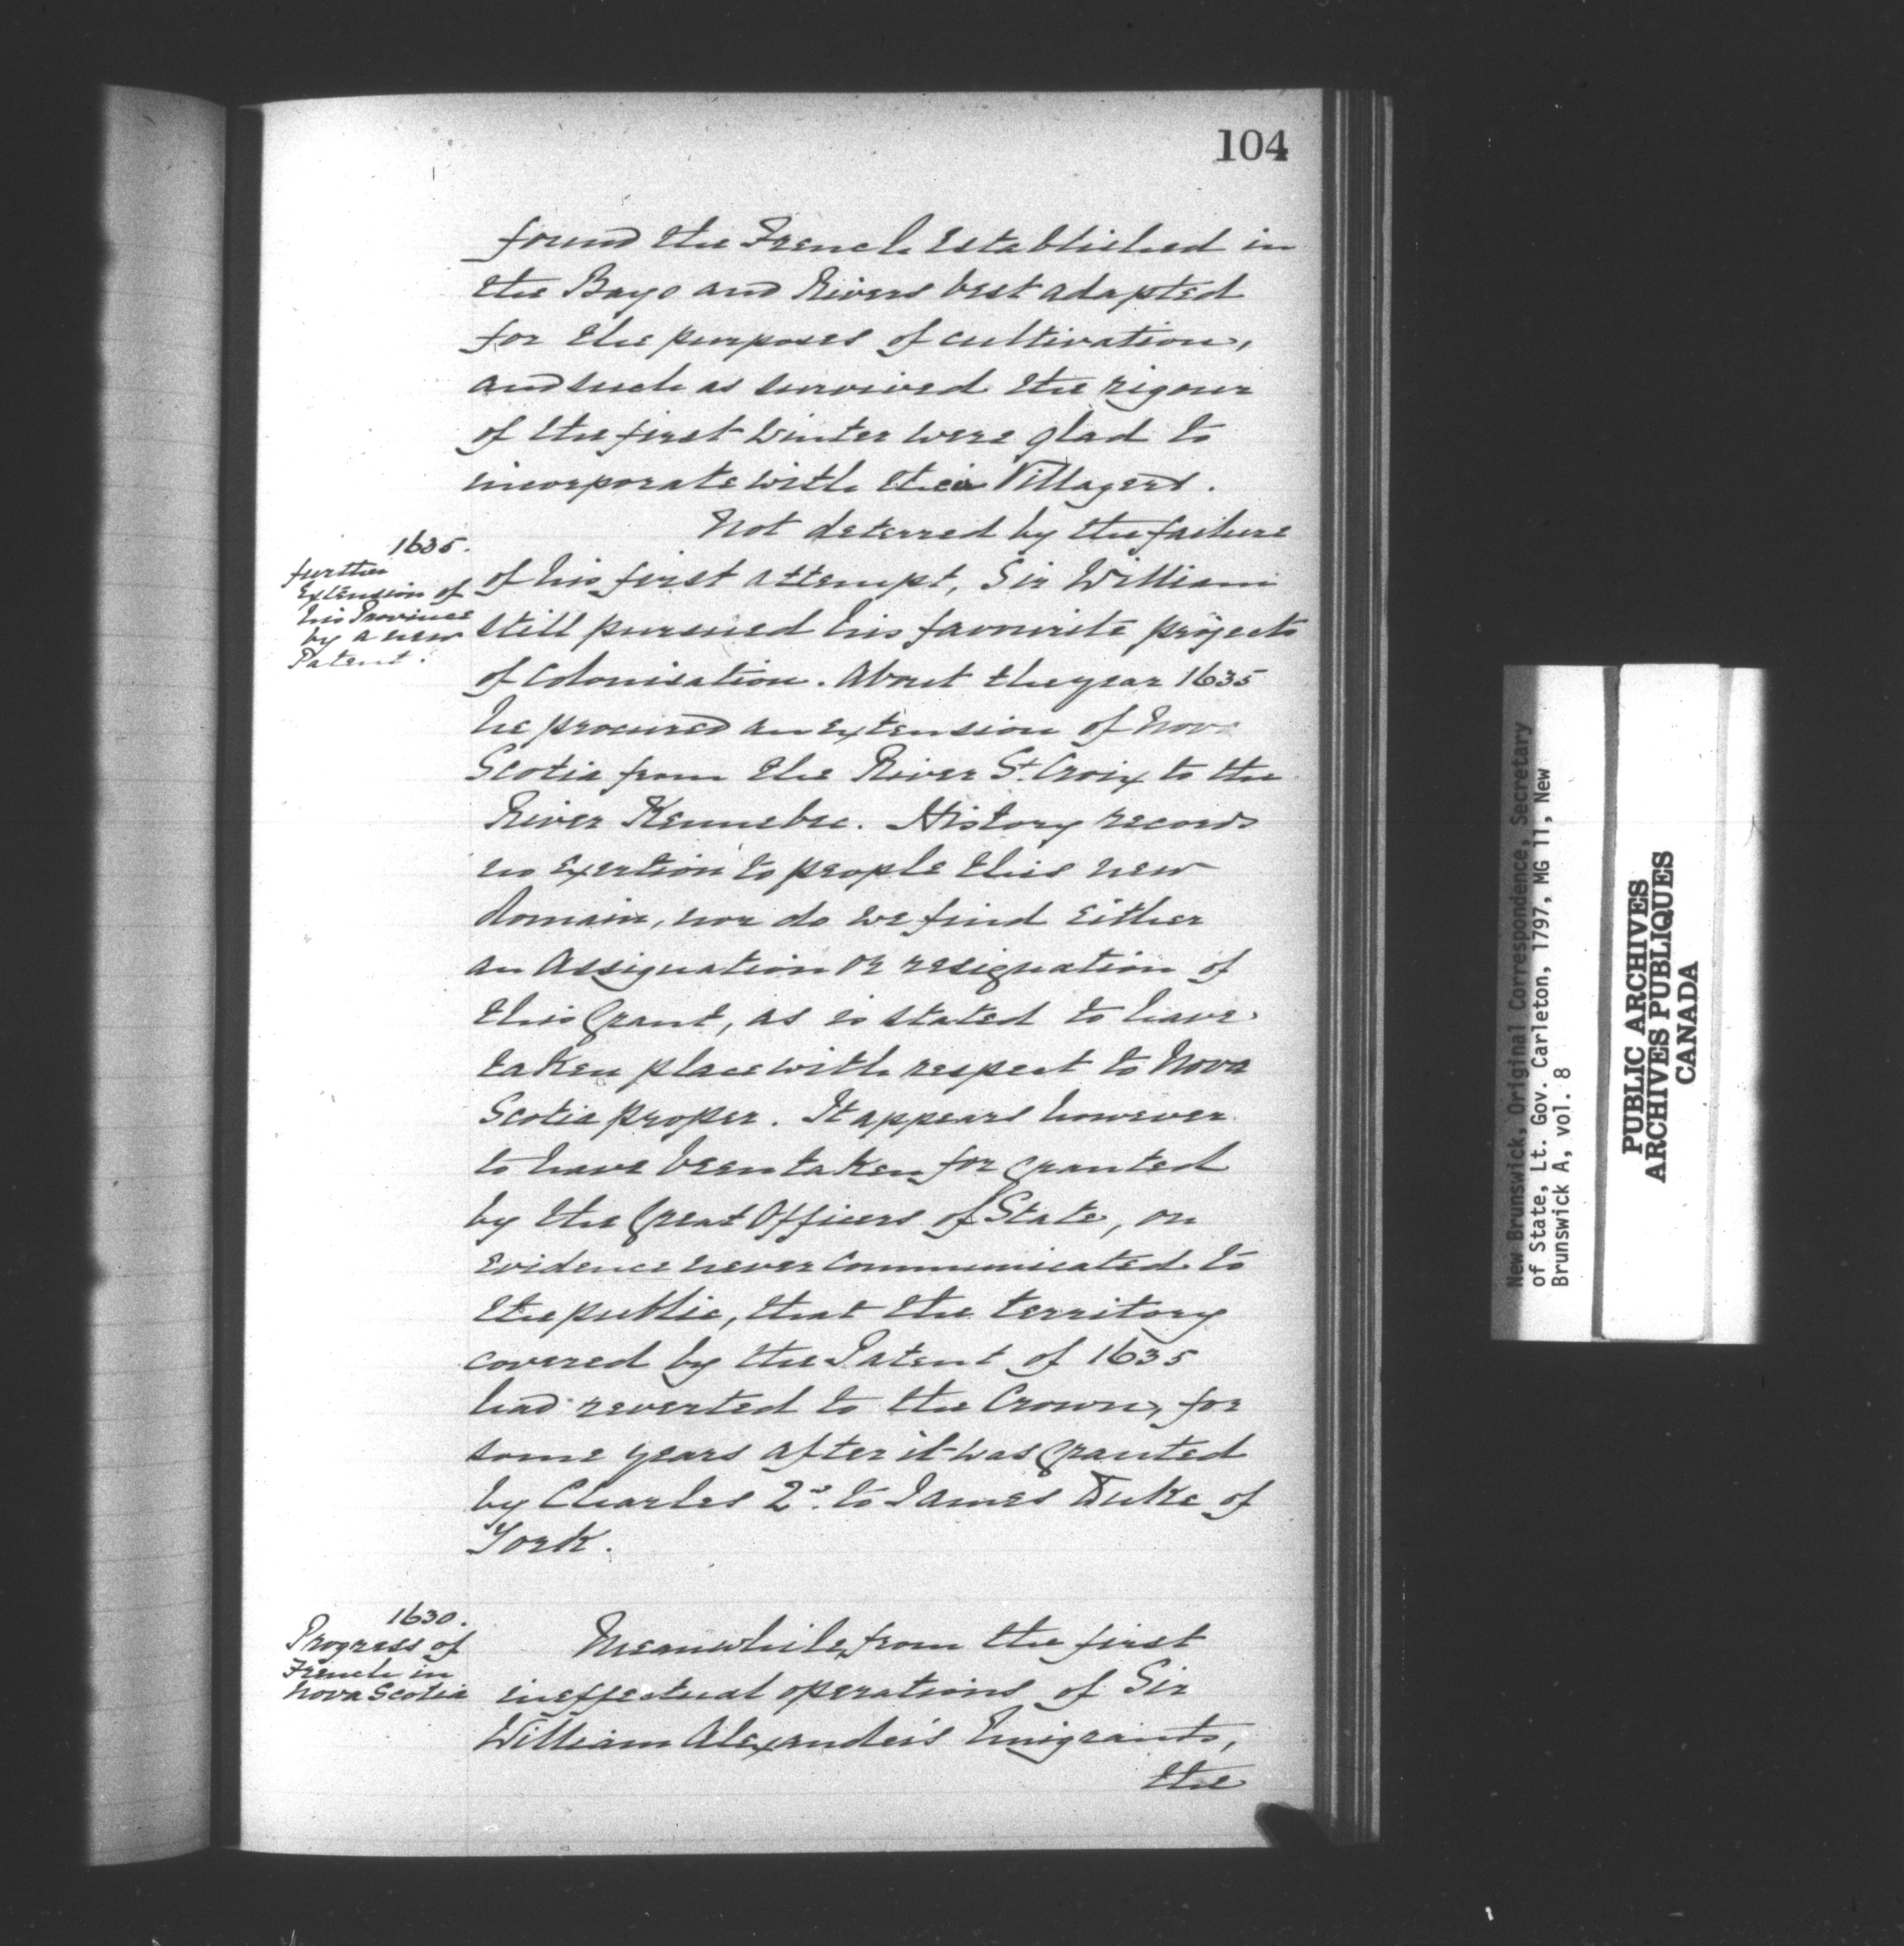 104
found the French Established in
the Bays and Rivers best adapted
for the purposes of cultivation,
and such as survived the rigour
of the first winter were glad to
incorporate with their Villagers.
Not deterred by the failure
1635.
further
Extension of
his Province
by a new
Patent.
of his first attempt, Sir William
still pursued his favourite projects
of Colonisation. About the year 1635
he procured an extension of Nova
Scotia from the River St. Croix to the
River Kennebec. History records
no Exertion to people this new
domain, nor do we find Either
an Assignation or resignation of
this Grant, as is stated to have
taken place with respect to Nova
Scotia proper. It appears however
to have been taken for granted
by the Great Officers of State, on
Evidence never Communicated to
the public, that the territory
covered by the Patent of 1635
had reverted to the Crown, for
some years after it was granted
by Charles 2d. to James Duke of
York.
1630.
Progress of
French in
Nova Scotia
Meanwhile, from the first
ineffectual operations of Sir
William Alexander's Emigrants,
the
New Brunswick, Original Correspondence, Secretary
of State, Lt. Gov. Carleton, 1797, MG 11, New
Brunswick A, vol. 8
PUBLIC ARCHIVES
ARCHIVES PUBLIQUES
CANADA